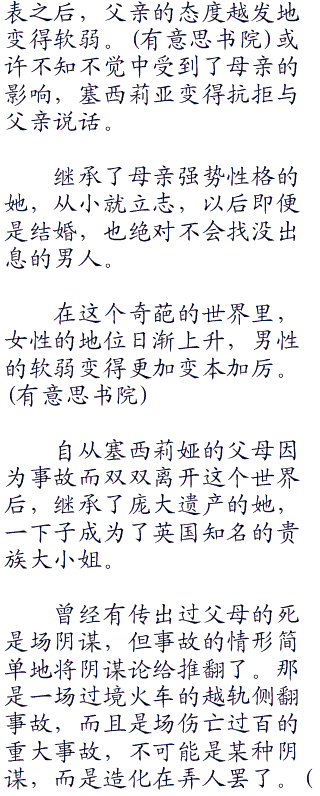 表之后，父亲的态度越发地
变得软弱。(有意思书院)或
许不知不觉中受到了母亲的
影响，塞西莉亚变得抗拒与
父亲说话。
继承了母亲强势性格的
她，从小就立志，以后即便
是结婚，也绝对不会找没出
息的男人。
在这个奇葩的世界里，
女性的地位日渐上升，男性
的软弱变得更加变本加厉。
(有意思书院)
自从塞西莉娅的父母因
为事故而双双离开这个世界
后，继承了庞大遗产的她，
一下子成为了英国知名的贵
族大小姐。
曾经有传出过父母的死
是场阴谋，但事故的情形简
单地将阴谋论给推翻了。那
是一场过境火车的越轨侧翻
事故，而且是场伤亡过百的
重大事故，不可能是某种阴
谋，而是造化在弄人罢了。(